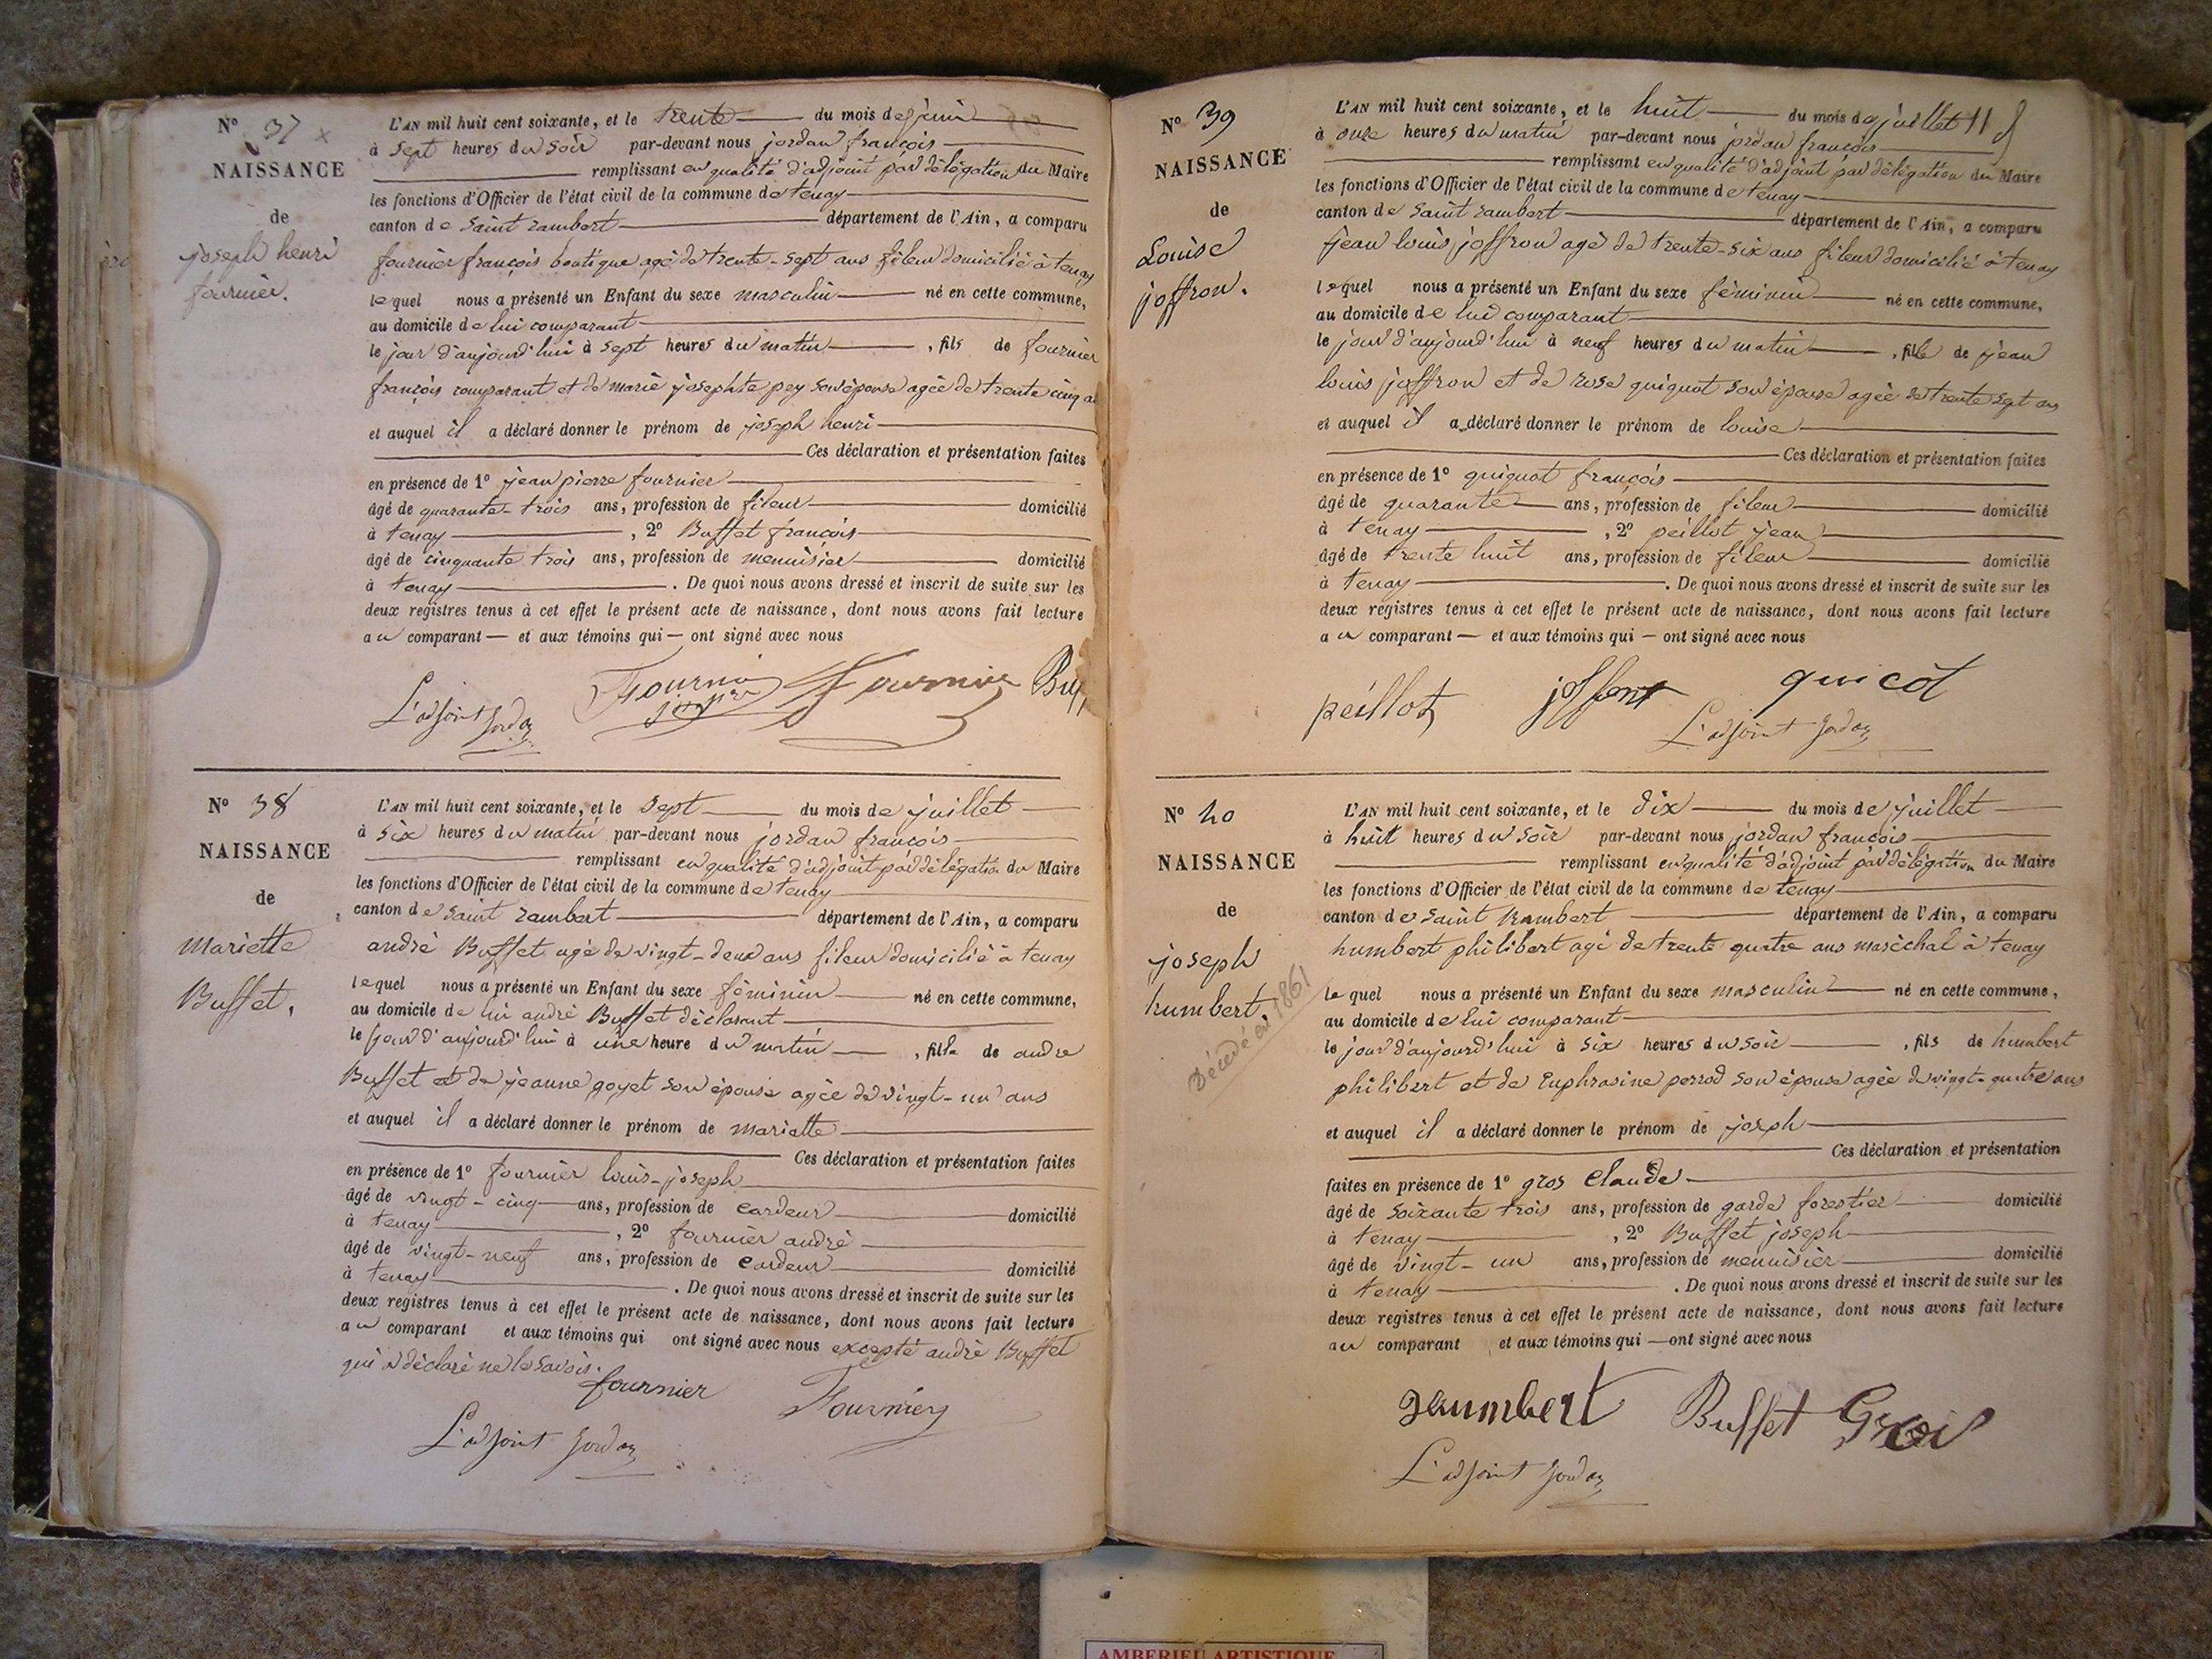 N° 37 x
NAISSANCE
de
joseph henri
fournier.
L'AN mil huit cent soixante, et le trente du mois de juin
à sept heures du soir par-devant nous jordan françois
remplissant en qualité d'adjoint par délégation du Maire
les fonctions d'Officier de l'état civil de la commune de tenay
canton de Saint rambert département de l'Ain, a comparu
fournier françois boutique agé de trente-sept ans fileur domicilié à tenay
lequel nous a présenté un Enfant du sexe masculin né en cette commune,
au domicile de lui comparant
le jour d'aujourd'hui à sept heures du matin, fils de fournier
françois comparant et de marie josephte pey son épouse agée de trente cinq a
et auquel il a déclaré donner le prénom de joseph henri
Ces déclaration et présentation faites
en présence de 1° jean pierre fournier
âgé de quarante-trois ans, profession de fileur domicilié
à tenay, 2° Buffet françois
âgé de cinquante trois ans, profession de menuisier domicilié
à tenay. De quoi nous avons dressé et inscrit de suite sur les
deux registres tenus à cet effet le présent acte de naissance, dont nous avons fait lecture
au comparant — et aux témoins qui — ont signé avec nous
Fournier Buff
L'adjoint Jordan
N° 38
NAISSANCE
de
mariette
Buffet.
L'AN mil huit cent soixante, et le sept du mois de juillet
à six heures du matin par-devant nous jordan françois
remplissant en qualité d'adjoint par délégation du Maire
les fonctions d'Officier de l'état civil de la commune de tenay
canton de Saint rambert département de l'Ain, a comparu
andré Buffet agé de vingt-deux ans fileur domicilié à tenay
lequel nous a présenté un Enfant du sexe féminin né en cette commune,
au domicile de lui andré Buffet déclarant
le jour d'aujourd'hui à une heure du matin, fille de andre
Buffet et de jeanne goyet son épouse agée de vingt-un ans
et auquel il a déclaré donner le prénom de mariette
Ces déclaration et présentation faites
en présence de 1° fournier louis-joseph
âgé de vingt-cinq ans, profession de cardeur domicilié
à tenay, 2° fournier andré
âgé de vingt-neuf ans, profession de cardeur domicilié
à tenay. De quoi nous avons dressé et inscrit de suite sur les
deux registres tenus à cet effet le présent acte de naissance, dont nous avons fait lecture
au comparant et aux témoins qui ont signé avec nous excepté andré Buffet
qui a déclaré ne le savoir.
fournier Fournier
L'adjoint Jordan
N° 39
NAISSANCE
de
Louise
joffron.
L'AN mil huit cent soixante, et le huit du mois de juillet
à onze heures du matin par-devant nous jordan françois
remplissant en qualité d'adjoint par délégation du Maire
les fonctions d'Officier de l'état civil de la commune de tenay
canton de Saint rambert département de l'Ain, a comparu
jean louis joffron agé de trente-six ans fileur domicilié à tenay
lequel nous a présenté un Enfant du sexe féminin né en cette commune,
au domicile de lui comparant
le jour d'aujourd'hui à neuf heures du matin, fille de jean
louis joffron et de rose guiguot son épouse agée de trente sept ans
et auquel il a déclaré donner le prénom de louise
Ces déclaration et présentation faites
en présence de 1° guiguot françois
âgé de quarante ans, profession de fileur domicilié
à tenay, 2° peillot jean
âgé de trente huit ans, profession de fileur domicilié
à tenay. De quoi nous avons dressé et inscrit de suite sur les
deux registres tenus à cet effet le présent acte de naissance, dont nous avons fait lecture
au comparant — et aux témoins qui — ont signé avec nous
peillot guicot
L'adjoint Jordan
N° 40
NAISSANCE
de
joseph
humbert.
Décédé en 1861
L'AN mil huit cent soixante, et le dix du mois de juillet
à huit heures du soir par-devant nous jordan françois
remplissant en qualité d'adjoint par délégation du Maire
les fonctions d'Officier de l'état civil de la commune de tenay
canton de Saint Rambert département de l'Ain, a comparu
humbert philibert agé de trente quatre ans maréchal à tenay
lequel nous a présenté un Enfant du sexe masculin né en cette commune,
au domicile de lui comparant
le jour d'aujourd'hui à six heures du soir, fils de humbert
philibert et de Euphrasine perrod son épouse agée de vingt-quatre ans
et auquel il a déclaré donner le prénom de joseph
Ces déclaration et présentation
faites en présence de 1° gros Claude
âgé de soixante trois ans, profession de garde forestier domicilié
à tenay, 2° Buffet joseph
âgé de vingt-un ans, profession de menuisier domicilié
à tenay. De quoi nous avons dressé et inscrit de suite sur les
deux registres tenus à cet effet le présent acte de naissance, dont nous avons fait lecture
au comparant et aux témoins qui — ont signé avec nous
Humbert Buffet Gros
L'adjoint Jordan
AMBERIEU ARTISTIQUE